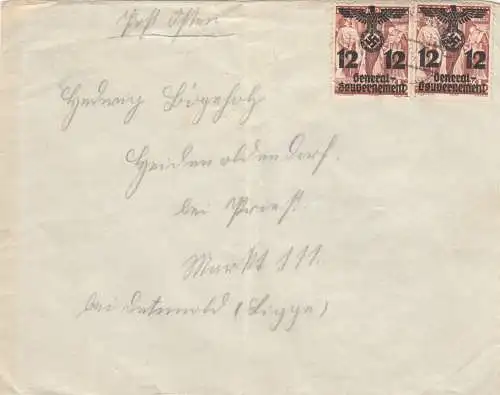 Post Osten
12 12 12 12
General- General-
Gouvernement Gouvernement
Hedwig
Heidenoldendorf.
bei
Markt 111.
bei Detmold (Lippe)